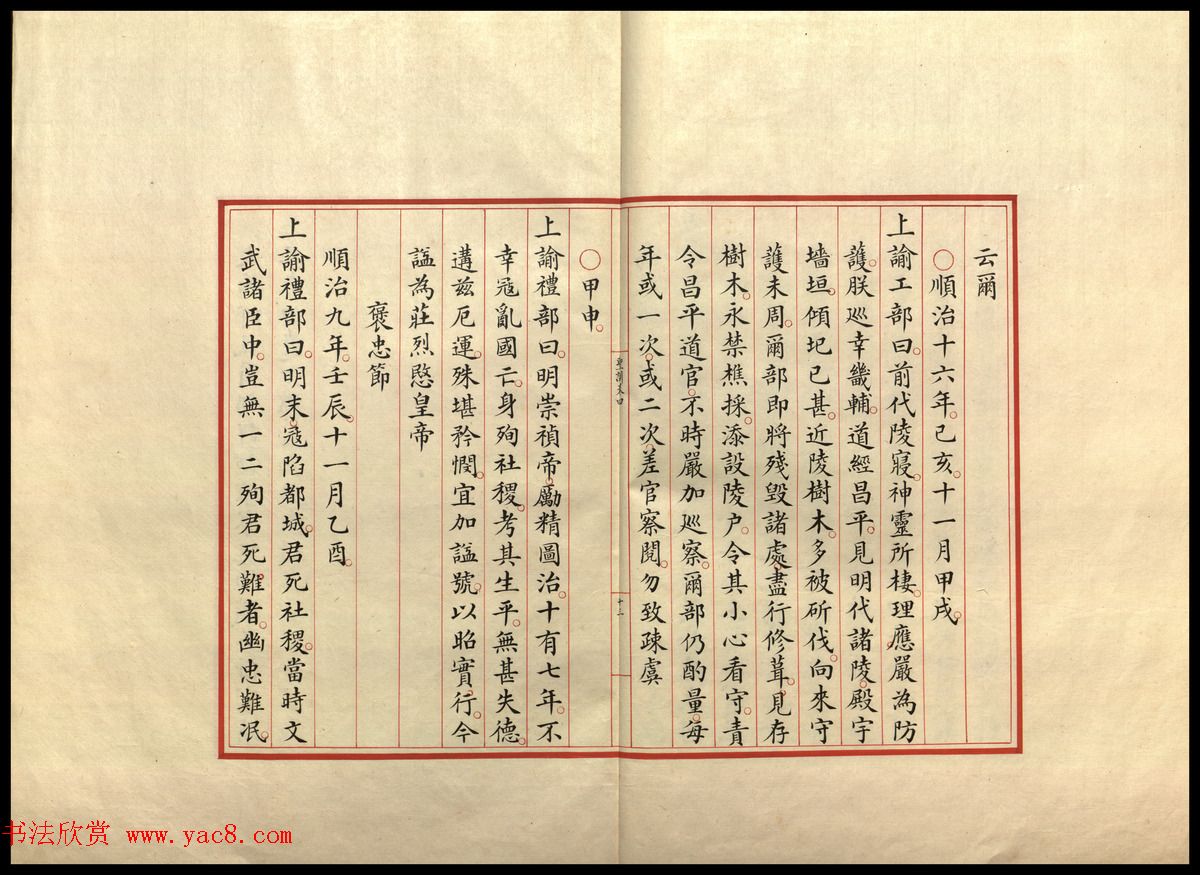 云爾
○順治十六年。己亥。十一月甲戌。
上諭工部曰。前代陵寢。神靈所棲。理應嚴為防
護。朕巡幸畿輔。道經昌平。見明代諸陵。殿宇
墻垣。傾圮已甚。近陵樹木。多被斫伐。向來守
護未周。爾部即將殘毀諸處。盡行修葺。見存
樹木。永禁樵採。添設陵户。令其小心看守。責
令昌平道官。不時嚴加巡察。爾部仍酌量。每
年或一次。或二次。差官察閱。勿致疎虞
聖謨卷四
十三
○甲申。
上諭禮部曰。明崇禎帝。勵精圖治。十有七年。不
幸寇亂國亡。身殉社稷。考其生平。無甚失德。
遘茲厄運。殊堪矜憫。宜加諡號。以昭實行。今
諡為莊烈愍皇帝
褒忠節
順治九年。壬辰。十一月乙酉。
上諭禮部曰。明末。寇陷都城。君死社稷。當時文
武諸臣中。豈無一二殉君死難者。幽忠難泯。
书法欣赏 www.yac8.com